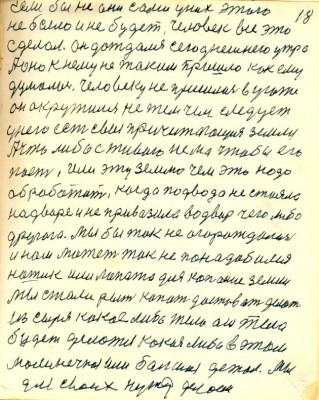 если бы не они сами у них этого 18
не было и не будет, человек все это
сделал. Он дождался сегоднешнего утра
А оно к нему не таким пришло как ему
думалося. Человеку не пришлося
он окружился не тем чем следует
у него есть своя земли
А что либо нема чтобы его
или эту землю чем это надо
обработать, когда подвода не стояла
на дворе и не привозила во двор чего либо
другого. Мы бы так не огорождалися
и нам может так не понадобился
или лопата для копание земли
Мы стали рыт копат достават делат
из сыря какое либо тело а от тела
будет делатся какая либо в этом
или деталь. Мы
для своих нужд делаем